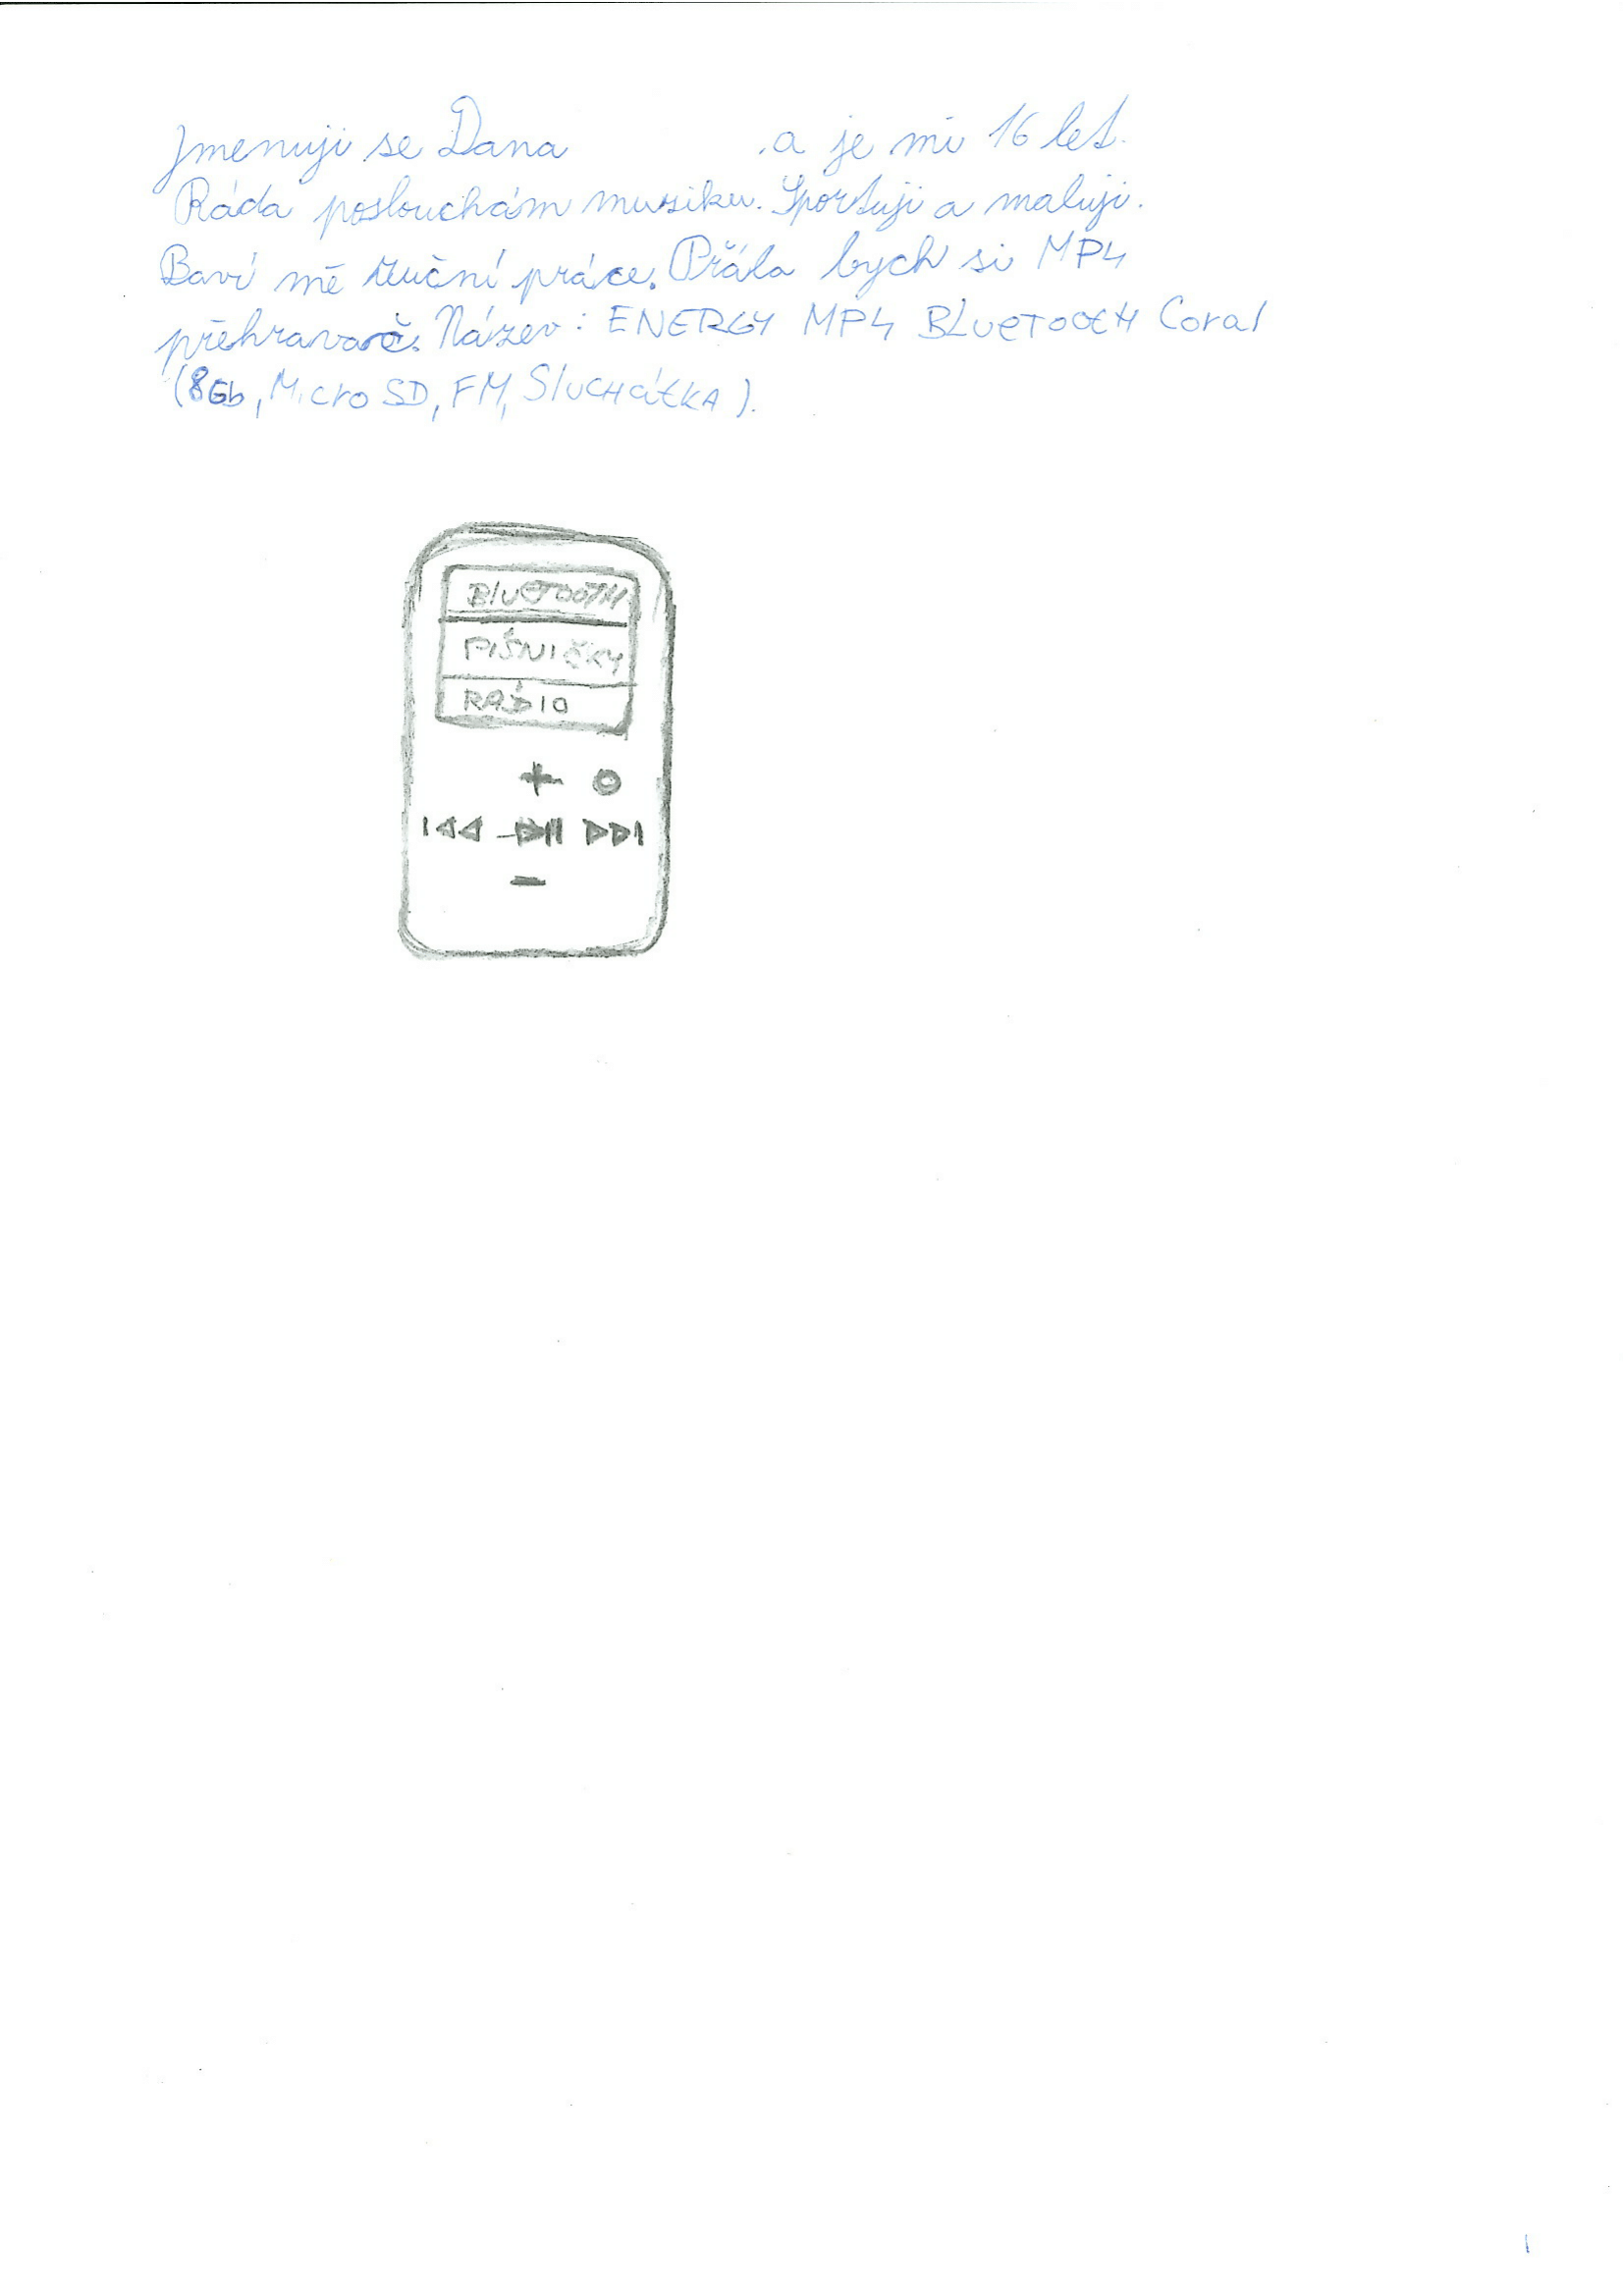 Jmenuji se Dana a je mi 16 let.
Ráda poslouchám musiku. Sportuji a maluji.
Baví mě ruční práce. Přála bych si MP4
přehravač. Název: ENERGY MP4 BLUETOOtH Coral
(8Gb, Micro SD, FM, SlUCHátKA).
BlUETOOTH
PÍSNIČKY
RÁDIO